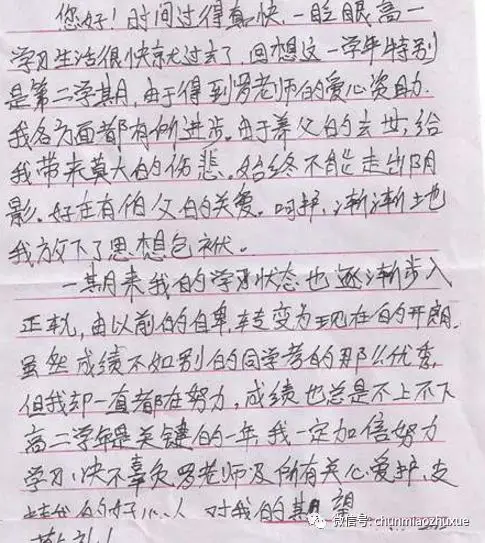 您好！时间过得真快，一眨眼高一
学习生活很快就过去了，回想这一学年特别
是第二学期，由于得到罗老师的爱心资助.
我各方面都有所进步。由于养父的去世，给
我带来莫大的伤悲。始终不能走出阴
影。好在有伯父的关爱。呵护，渐渐地
我放下了思想包袱。
一期来我的学习状态也逐渐步入
正轨，由以前的自卑，转变为现在的开朗.
虽然成绩不如别的同学考的那么优秀，
但我却一直都在努力，成绩也总是不上不下
高二学年是关键的一年，我一定加倍努力
学习，决不辜负罗老师及所有关心爱护、支
持我的好心人 对我的期望
微信号: chunmiaozhuxue